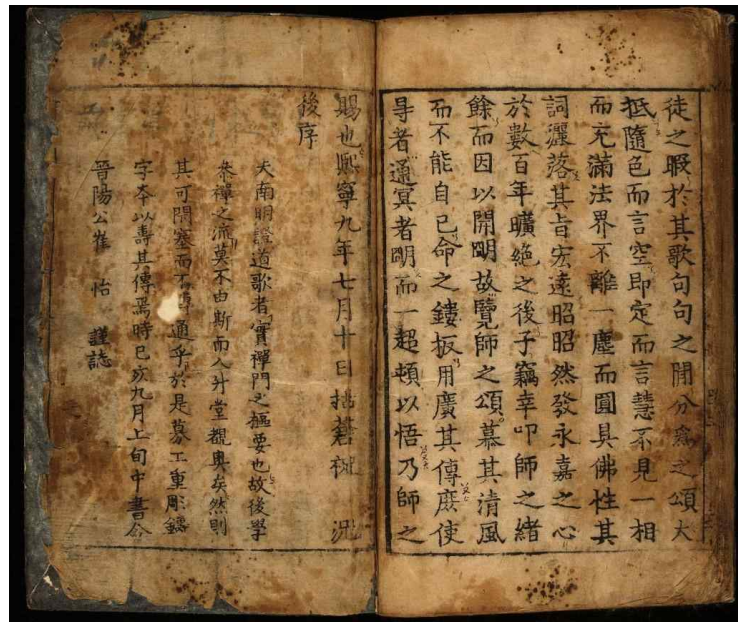 徒之暇於其歌句句之閒分爲之頌大
抵隨色而言空即定而言慧不見一相
而充滿法界不離一塵而圓具佛性其
詞灑落其旨宏遠昭昭然發永嘉之心
於數百年曠絶之後子竊幸叩師之緒
餘而因以開明故覽師之頌慕其清風
而不能自已命之鏤板用廣其傳庶使
㝵者通冥者明而一超頓以悟乃師之
賜也熈寧九年七月十日括蒼祝 况
後序
夫南明證道歌者實禪門之樞要也故後學
叅禪之流莫不由斯而入升堂覩奥矣然則
其可閉塞而不傳通乎於是募工重彫鑄
字夲以壽其傳焉時己亥九月上旬中書令
晉陽公崔 怡 謹誌